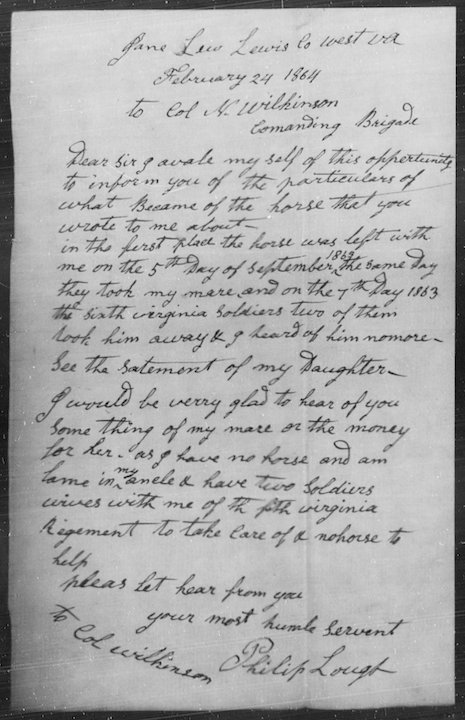 Jane Lew Lewis Co West va
February 24 1864
to Col N. Wilkinson
Comanding Brigade
Dear Sir I avale my self of this oppertunity
to inform you of the particulars of
what Became of the horse that you
wrote to me about-
in the first place the horse was left with
me on the 5th Day of September 1863 the same Day
they took my mare, and on the 7th Day 1863
the Sixth virginia Soldiers two of them
took him away & I heard of him nomore-
See the Satement of my Daughter-
I would be verry glad to hear of you
Some thing of my mare or the money
for her- as I have no horse and am
lame in my ancle & have two Soldiers
wives with me of th virginia
Regement to take Care of & nohorse to
help
pleas let hear from you
your most humle Servent
to Col Wilkinson
Philip Lough